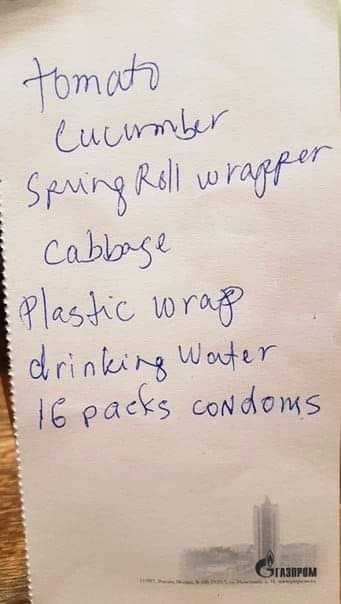 tomato
cucumber
Spring Roll wrapper
cabbage
Plastic wrap
drinking Water
16 packs condoms
ГАЗПРОМ